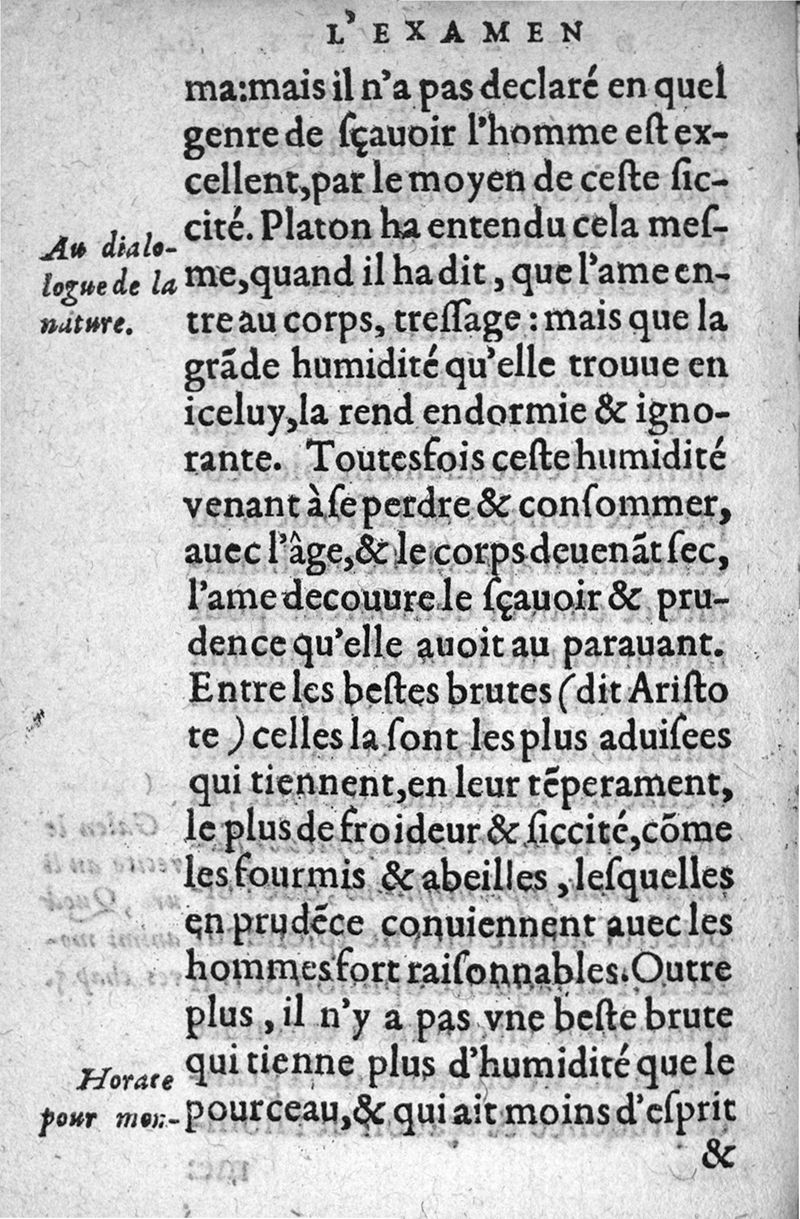 L'EXAMEN
ma:mais il n'a pas declaré en quel
genre de ſçauoir l'homme eſt ex-
cellent,par le moyen de ceſte ſic-
cité. Platon ha entendu cela meſ-
me,quand il ha dit, que l'ame en-
tre au corps, treſſage : mais que la
grãde humidité qu'elle trouue en
iceluy,la rend endormie & igno-
rante. Toutesfois ceſte humidité
venant à ſe perdre & conſommer,
auec l'âge,& le corps deuenãt ſec,
l'ame decouure le ſçauoir & pru-
dence qu'elle auoit au parauant.
Entre les beſtes brutes (dit Ariſto
te ) celles la ſont les plus aduiſees
qui tiennent,en leur tẽperament,
le plus de froideur & ſiccité,cõme
les fourmis & abeilles , leſquelles
en prudẽce conuiennent auec les
hommes fort raiſonnables. Outre
plus , il n'y a pas vne beſte brute
qui tienne plus d'humidité que le
pourceau,& qui ait moins d'eſprit
&
Au dialo-
logue de la
nature.
Horace
pour mon-